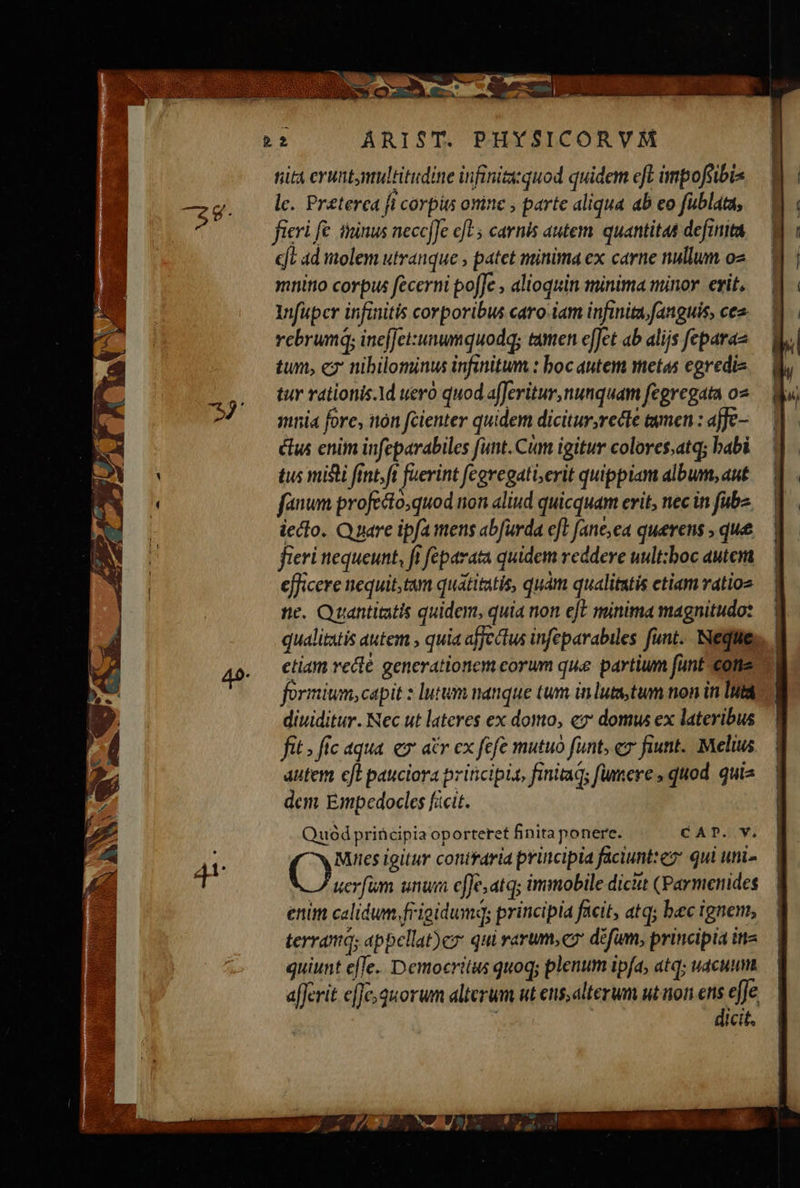 22 ARIST. PHYSICORVM
nita erunt,multitudine infinita:quod quidem eſt impoſsibi=
38. le. Præterea ſi corpus omne , parte aliqua ab eo ſublata,
fieri ſe minus neceſſe eſt , carnis autem quantitas definita
eſt ad molem utranque , patet minima ex carne nullum o=
mnino corpus ſecerni poſſe , alioquin minima minor erit.
Inſuper infinitis corporibus caro iam infinita,ſanguis, ce=
rebrumq́; ineſſet:unumquodq; tamen eſſet ab alijs ſepara=
tum, & nihilominus infinitum : hoc autem metas egredi=
tur rationis.Id uerò quod aſſeritur,nunquam ſegregata o=
39. mnia fore, non ſcienter quidem dicitur,recte tamen : affe-
ctus enim inſeparabiles ſunt.Cùm igitur colores,atq; habi
tus misti ſint,ſi fuerint ſegregati,erit quippiam album, aut
ſanum profectò,quod non aliud quicquam erit, nec in ſub=
iecto. Quare ipſa mens abſurda eſt ſanè,ea quærens , quæ
fieri nequeunt, ſi ſeparata quidem reddere uult:hoc autem
efficere nequit,tam quãtitatis, quàm qualitatis etiam ratio=
ne. Quantitatis quidem, quia non eſt minima magnitudo:
qualitatis autem , quia affectus inſeparabiles ſunt. Neque
40. etiam rectè generationem eorum quæ partium ſunt con=
formium,capit : lutum nanque tum in luta,tum non in luta
diuiditur. Nec ut lateres ex domo, & domus ex lateribus
fit , ſic aqua & aër ex ſeſe mutuò ſunt, & fiunt. Melius
autem eſt pauciora principia, finitaq́; ſumere , quod qui=
dem Empedocles facit.
Quòd principia oporteret finita ponere. CAP. V.
41. OMnes igitur contraria principia faciunt:& qui uni=
uerſum unum eſſe,atq; immobile dicũt (Parmenides
enim calidum,frigidumq́; principia facit, atq; hæc ignem,
terramq́; appellat)& qui rarum,& dẽſum, principia in=
quiunt eſſe. Democritus quoq; plenum ipſa, atq; uacuum
aſſerit eſſe,quorum alterum ut ens,alterum ut non ens eſſe
dicit.